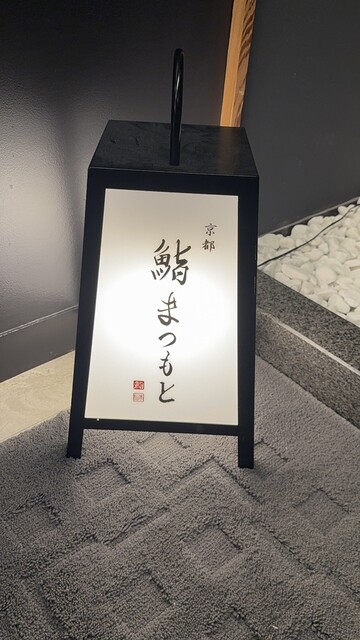 京都
鮨まつもと